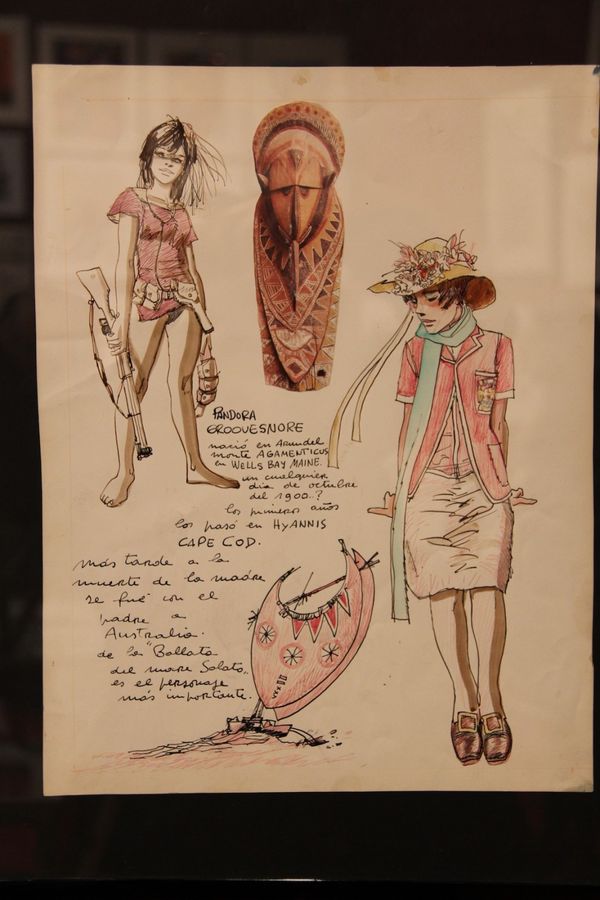 PANDORA
GROOVESNORE
nació en Arundel
monte AGAMENTICUS
en WELLS BAY MAINE.
un cualquier
dia de octubre
del 1900..?
los primeros años
los pasó en HYANNIS
CAPE COD.
más tarde a la
muerte de la madre
se fué con el
padre a
Australia.
de la "Ballata
del mare Salato„
es el personaje
más importante.